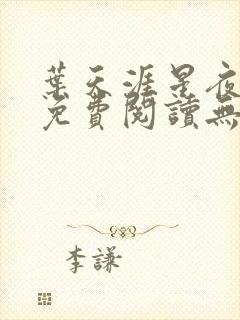 葉天涯星夜
免費閱讀無
李謙